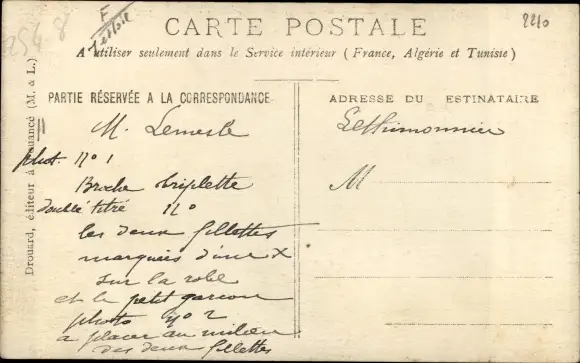 F
CARTE POSTALE
2210
A utiliser seulement dans le Service intérieur (France, Algérie et Tunisie)
PARTIE RÉSERVÉE A LA CORRESPONDANCE
M. Lemesle
phot. no 1
Broche triplette
doublé titré no
les deux fillettes
marqués d'une X
sur la robe
et le petit garcon
photo no 2
a placer au milieu
des deux fillettes
ADRESSE DU ESTINATAIRE
Lethimonnier
M
Drouard, éditeur à Pouancé (M. & L.)